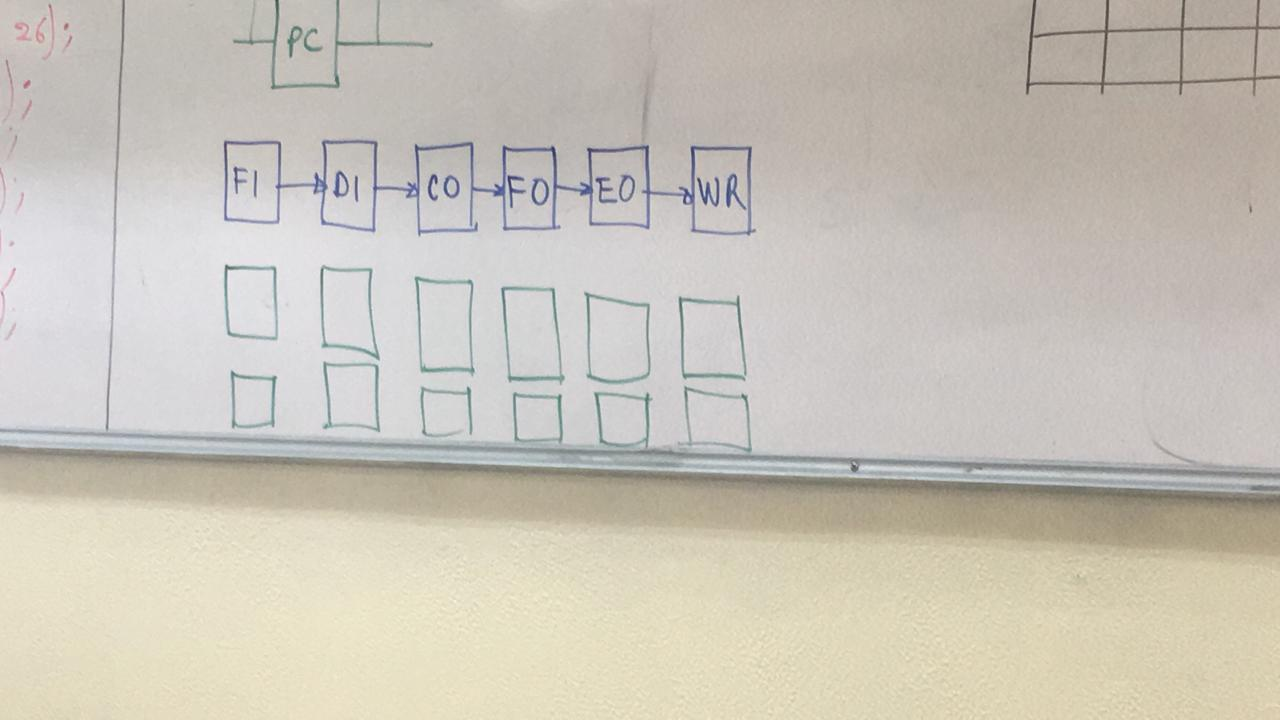 26);
);
;
);
PC
FI DI CO FO EO WR